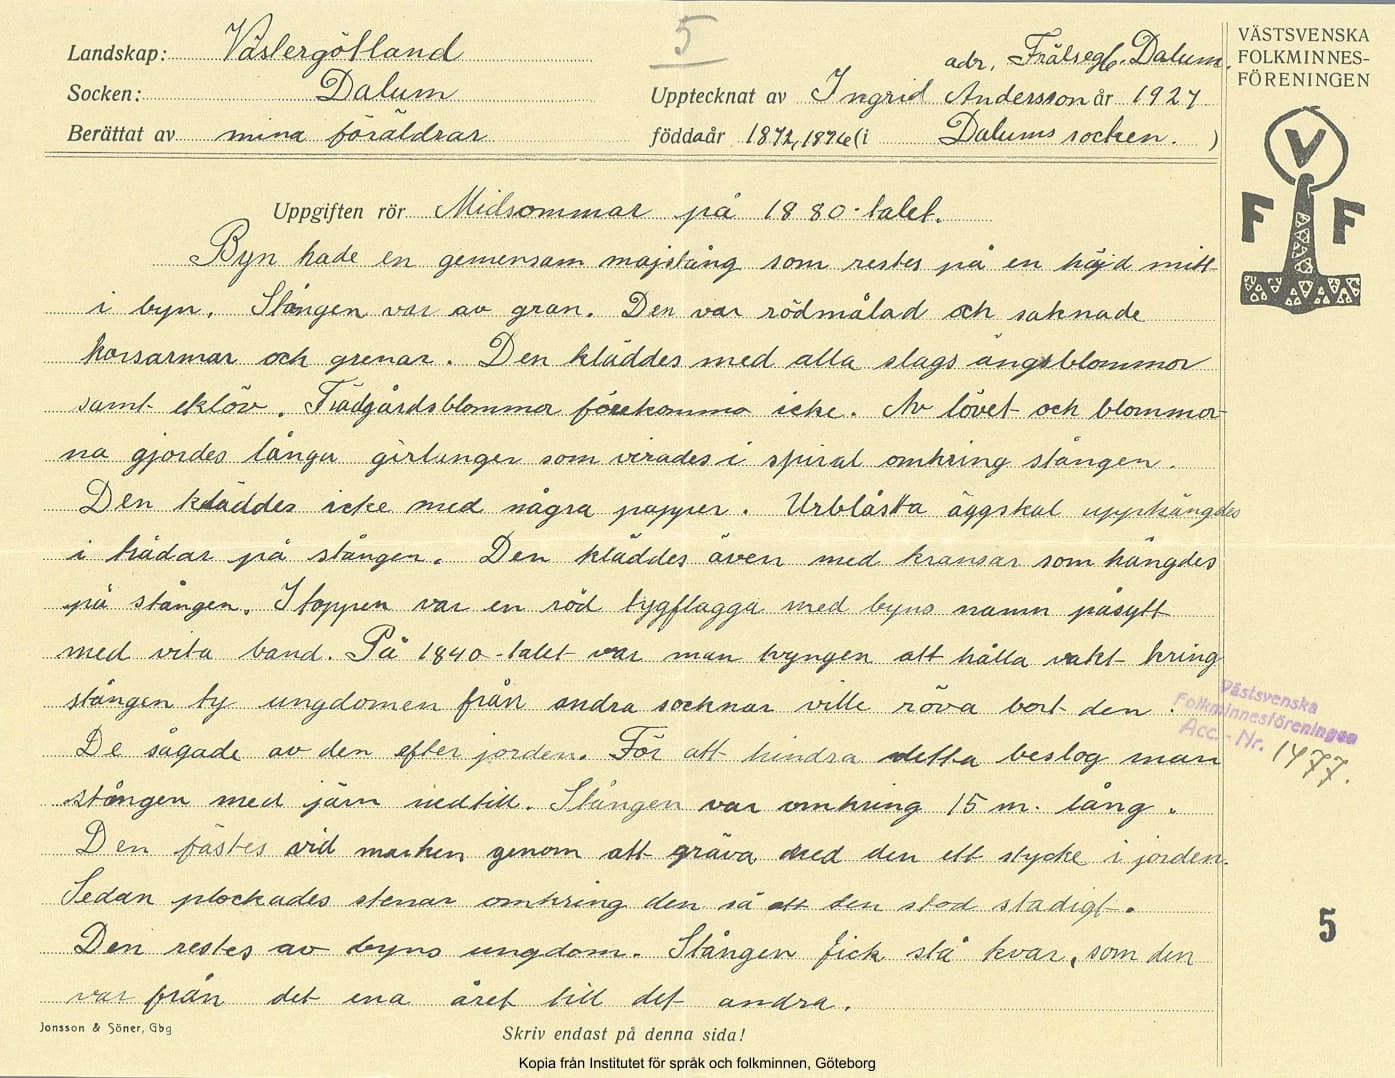 5
Landskap: Västergötland
Socken: Dalum
Berättat av mina föräldrar
adr. Frälsegb. Dalum.
Upptecknat av Ingrid Andersson år 1927
födda år 1872, 1876 (i Dalums socken. )
VÄSTSVENSKA
FOLKMINNES-
FÖRENINGEN
V
F F
Uppgiften rör Midsommar på 1880-talet.
Byn hade en gemensam majstång som restes på en höjd mitt
i byn. Stången var av gran. Den var rödmålad och saknade
korsarmar och grenar. Den kläddes med alla slags ängsblommor
samt eklöv. Trädgårdsblommor förekommo icke. Av lövet och blommor-
na gjordes långa girlanger som virades i spiral omkring stången.
Den kläddes icke med några papper. Urblåsta äggskal upphängdes
i trådar på stången. Den kläddes även med kransar som hängdes
på stången. I toppen var en röd tygflagga med byns namn påsytt
med vita band. På 1840-talet var man tvyngen att hålla vakt kring
stången ty ungdomen från andra socknar ville röva bort den.
De sågade av den efter jorden. För att hindra detta beslog man
stången med järn nedtill. Stången var omkring 15 m. lång.
Den fästes vid marken genom att gräva ned den ett stycke i jorden.
Sedan plockades stenar omkring den så att den stod stadigt.
Den restes av byns ungdom. Stången fick stå kvar, som den
var från det ena året till det andra.
Västsvenska
Folkminnesföreningen
Acc.-Nr. 1477.
5
Jonsson & Söner, Gbg
Skriv endast på denna sida!
Kopia från Institutet för språk och folkminnen, Göteborg